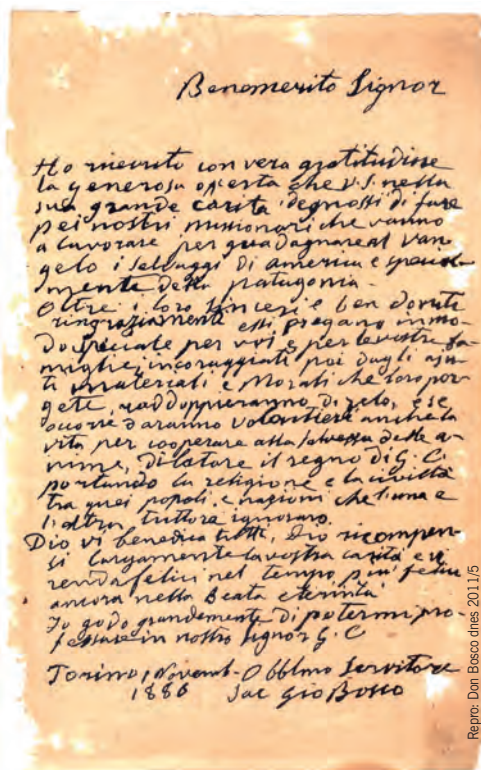 Benemerito Signor
Ho ricevuto con vera gratitudine
la generosa offerta che V.S. nella
sua grande carità degnossi di fare
pei nostri missionari che vanno
a lavorare per guadagnare al Van
gelo i selvaggi di america e special
mente della patagonia.
Oltre i loro sinceri e ben dovuti
ringraziamenti essi pregano in mo-
do speciale per voi e per le vostre fa
miglie; incoraggiati poi dagli aju-
ti materiali e Morali che loro por
gete, raddoppieranno di zelo, e se
occorre daranno volontieri anche la
vita per cooperare alla salvezza delle a-
nime, dilatare il regno di G. C.
portando la religione e la civiltà
tra quei popoli e nazioni che l'una e
l'altra tuttora ignorano.
Dio vi benedica tutti, Dio ricompen-
si largamente la vostra carità e vi
renda felici nel tempo, più felici
ancora nella Beata eternità
Io godo grandemente di potermi pro-
fessare in nostro Signor G. C
Torino, Novemb- Obblmo Servitore
1886 Sac Gio Bosco
Repro: Don Bosco dnes 2011/5